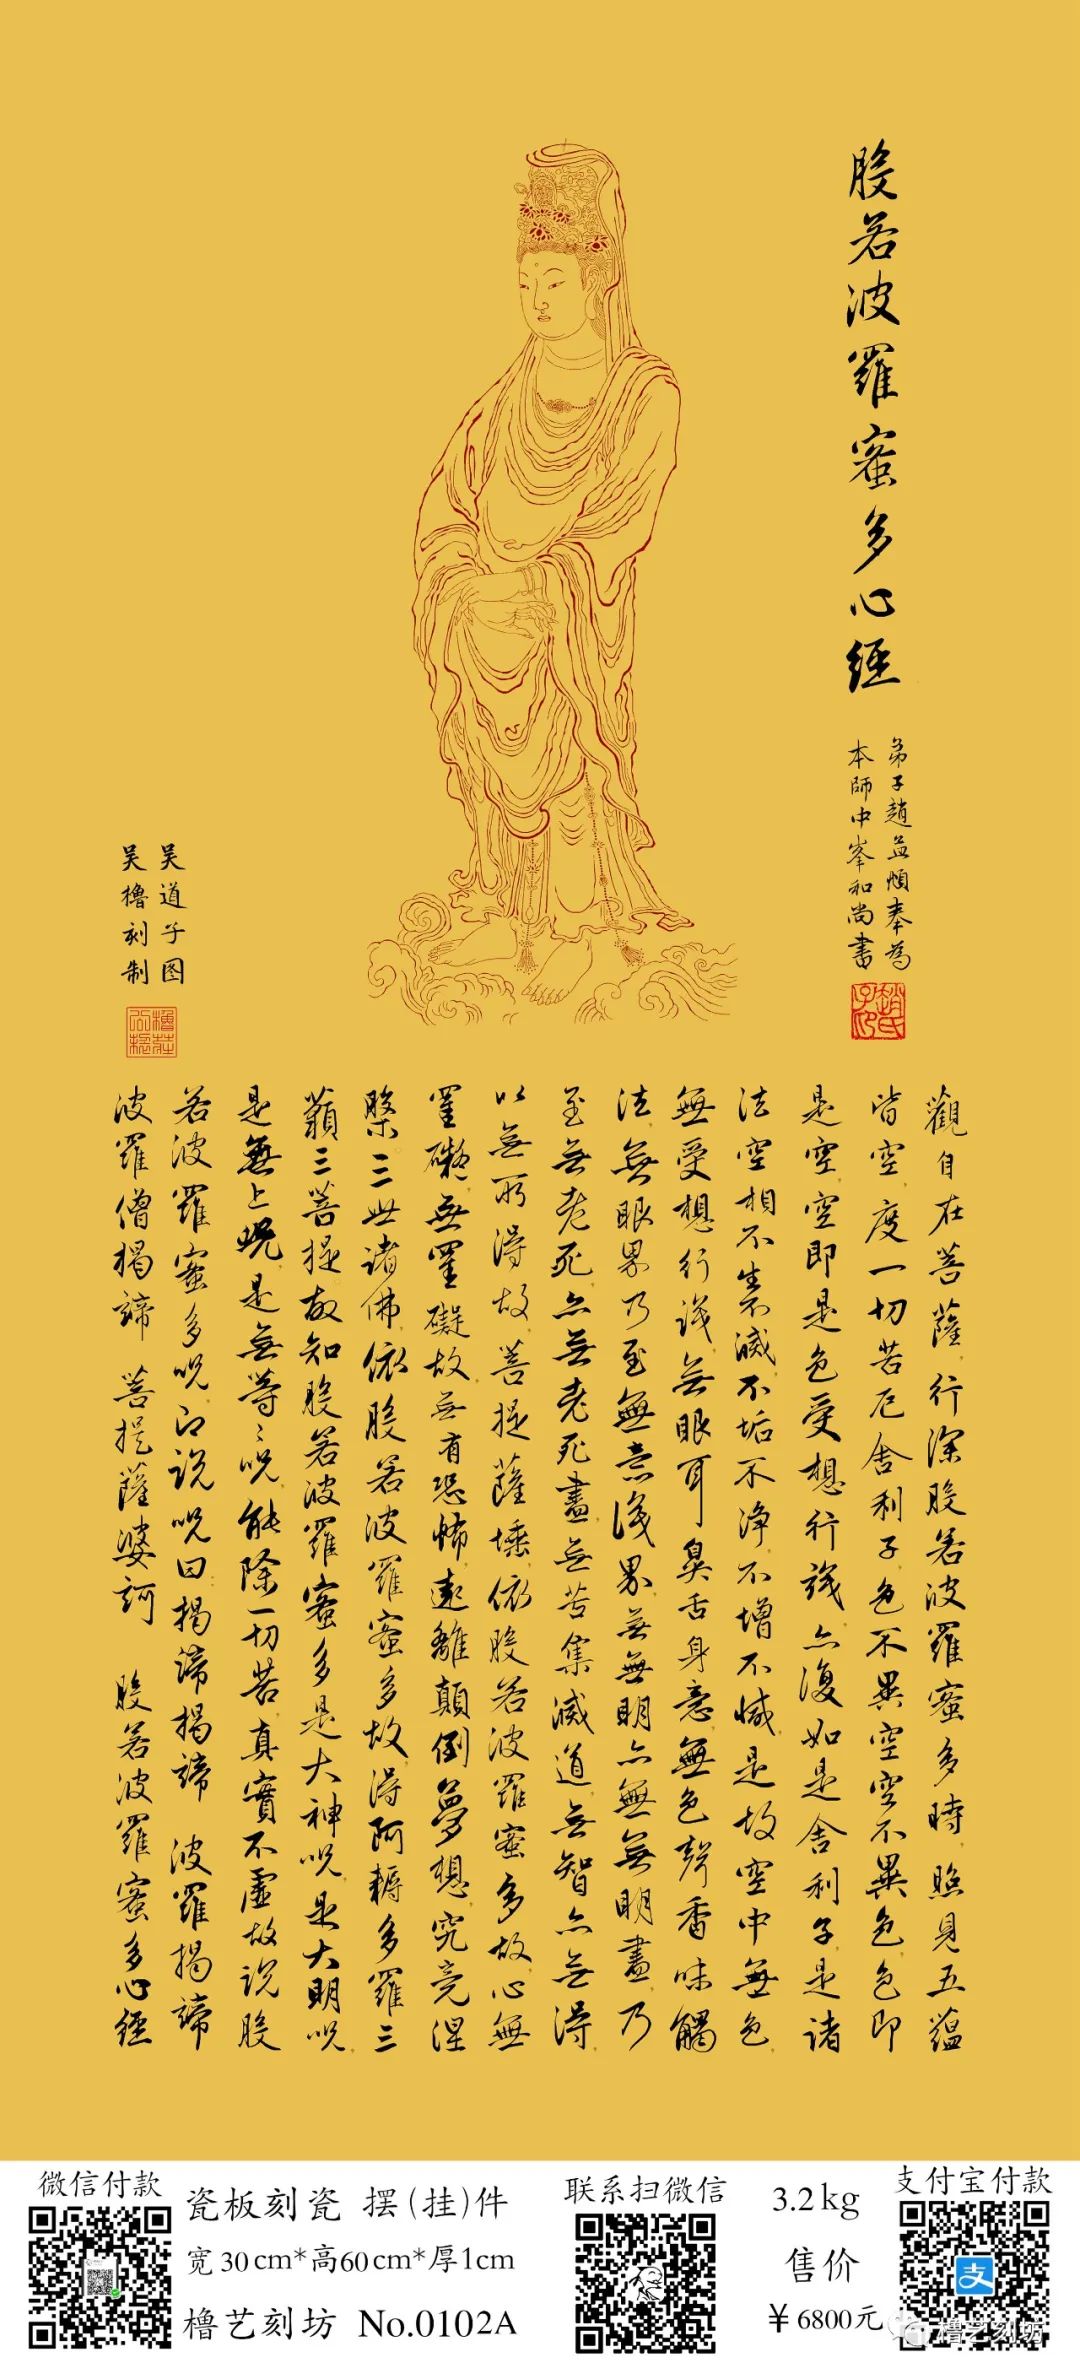 般若波羅蜜多心經
弟子趙孟頫奉為
本師中峯和尚書
吴道子图
吴橹刻制
觀自在菩薩行深般若波羅蜜多時照見五蘊
皆空度一切苦厄舍利子色不異空空不異色色即
是空空即是色受想行識亦復如是舍利子是諸
法空相不生不滅不垢不淨不增不減是故空中無色
無受想行識無眼耳鼻舌身意無色聲香味觸
法無眼界乃至無意識界無無明亦無無明盡乃
至無老死亦無老死盡無苦集滅道無智亦無得
以無所得故菩提薩埵依般若波羅蜜多故心無
罣礙無罣礙故無有恐怖遠離顛倒夢想究竟涅
槃三世諸佛依般若波羅蜜多故得阿耨多羅三
藐三菩提故知般若波羅蜜多是大神呪是大明呪
是無上呪是無等々呪能除一切苦真實不虛故說般
若波羅蜜多呪即說呪曰揭諦揭諦 波羅揭諦
波羅僧揭諦 菩提薩婆訶 般若波羅蜜多心經
微信付款
瓷板刻瓷 摆(挂)件
宽30cm*高60cm*厚1cm
橹艺刻坊 No.0102A
联系扫微信
3.2kg
售价
¥6800元
支付宝付款
支
橹艺刻坊